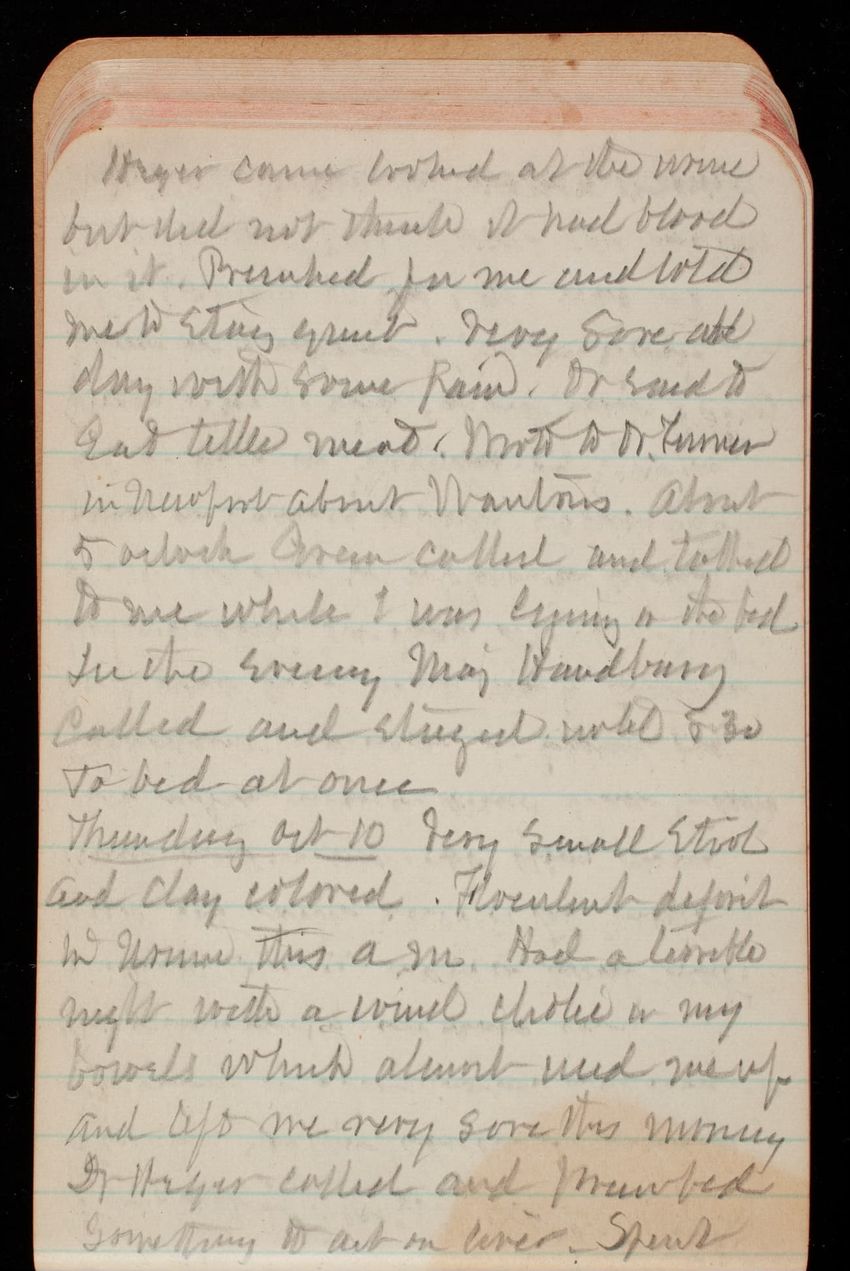 Heger came looked at the urine
but did not think it had blood
in it. Prescribed for me and told
me to stay quiet. Very sore all
day with some pain. Dr said to
Eat little meat. Wrote to Dr. Turner
in Newport about Wantons. About
5 oclock Green called and talked
to me while I was lying on the bed
In the evening Maj Handbury
called and stayed until 8 30
to bed at once
Thursday Oct 10 Very small stool
and clay colored. Floculent deposit
in urine this a m. Had a terrible
night with a wind cholic in my
bowels which almost used me up
and left me very sore this morning
Dr Heger called and prescribed
something to act on liver. Spent